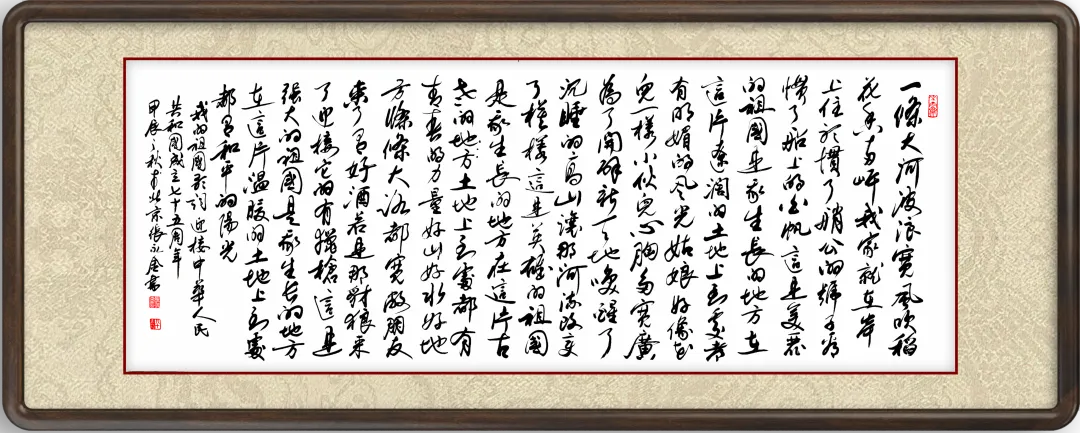 一條大河波浪寬風吹稻
花香兩岸我家就在岸
上住聽慣了艄公的號子看
慣了船上的白帆這是美麗
的祖國是我生長的地方在
這片遼闊的土地上到處都
有明媚的风光姑娘好像花
兒一樣小伙兒心胸多寬廣
為了開闢新天地喚醒了
沉睡的高山讓那河流改變
了模樣這是英雄的祖國
是我生長的地方在這片古
老的地方土地上到處都有
青春的力量好山好水好地
方條條大路都寬敞朋友
來了有好酒若是那豺狼來
了迎接它的有獵槍這是
強大的祖國是我生长的地方
在這片溫暖的土地上到處
都有和平的陽光
我的祖國歌詞迎接中華人民
共和國成立七十五周年
甲辰之秋於北京張永書